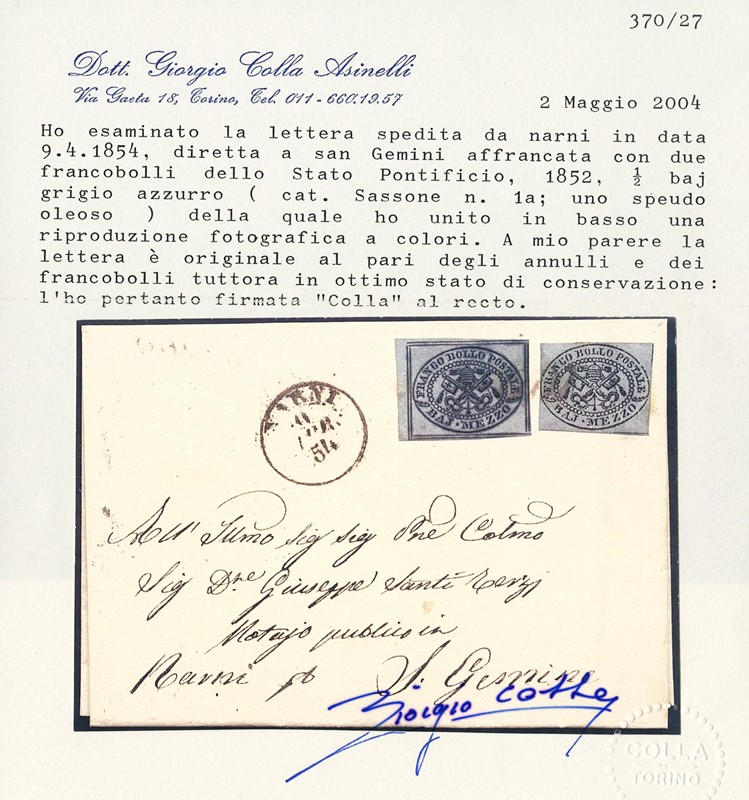 370/27
Dott. Giorgio Colla Asinelli
Via Gaeta 18, Torino, Tel. 011-660.19.57
2 Maggio 2004
Ho esaminato la lettera spedita da narni in data
9.4.1854, diretta a san Gemini affrancata con due
francobolli dello Stato Pontificio, 1852, ½ baj
grigio azzurro ( cat. Sassone n. 1a; uno speudo
oleoso ) della quale ho unito in basso una
riproduzione fotografica a colori. A mio parere la
lettera è originale al pari degli annulli e dei
francobolli tuttora in ottimo stato di conservazione:
l'ho pertanto firmata "Colla" al recto.
FRANCO BOLLO POSTALE
BAJ · MEZZO
FRANCO BOLLO POSTALE
BAJ · MEZZO
NARNI
9
APR.
54
All' Illmo Sig Sig Pne Colmo
Sig Dre Giuseppe Santi Terzi
Notajo publico in
Narni p S. Gemine
Giorgio Colla
COLLA
TORINO